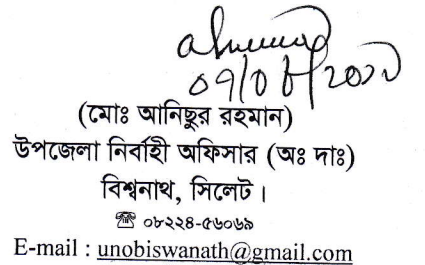 (মোঃ আনিছুর রহমান)
উপজেলা নির্বাহী অফিসার (অঃ দাঃ)
বিশ্বনাথ, সিলেট।
☎ ০৮২২৪-৫৬০৬৯
E-mail : unobiswanath@gmail.com